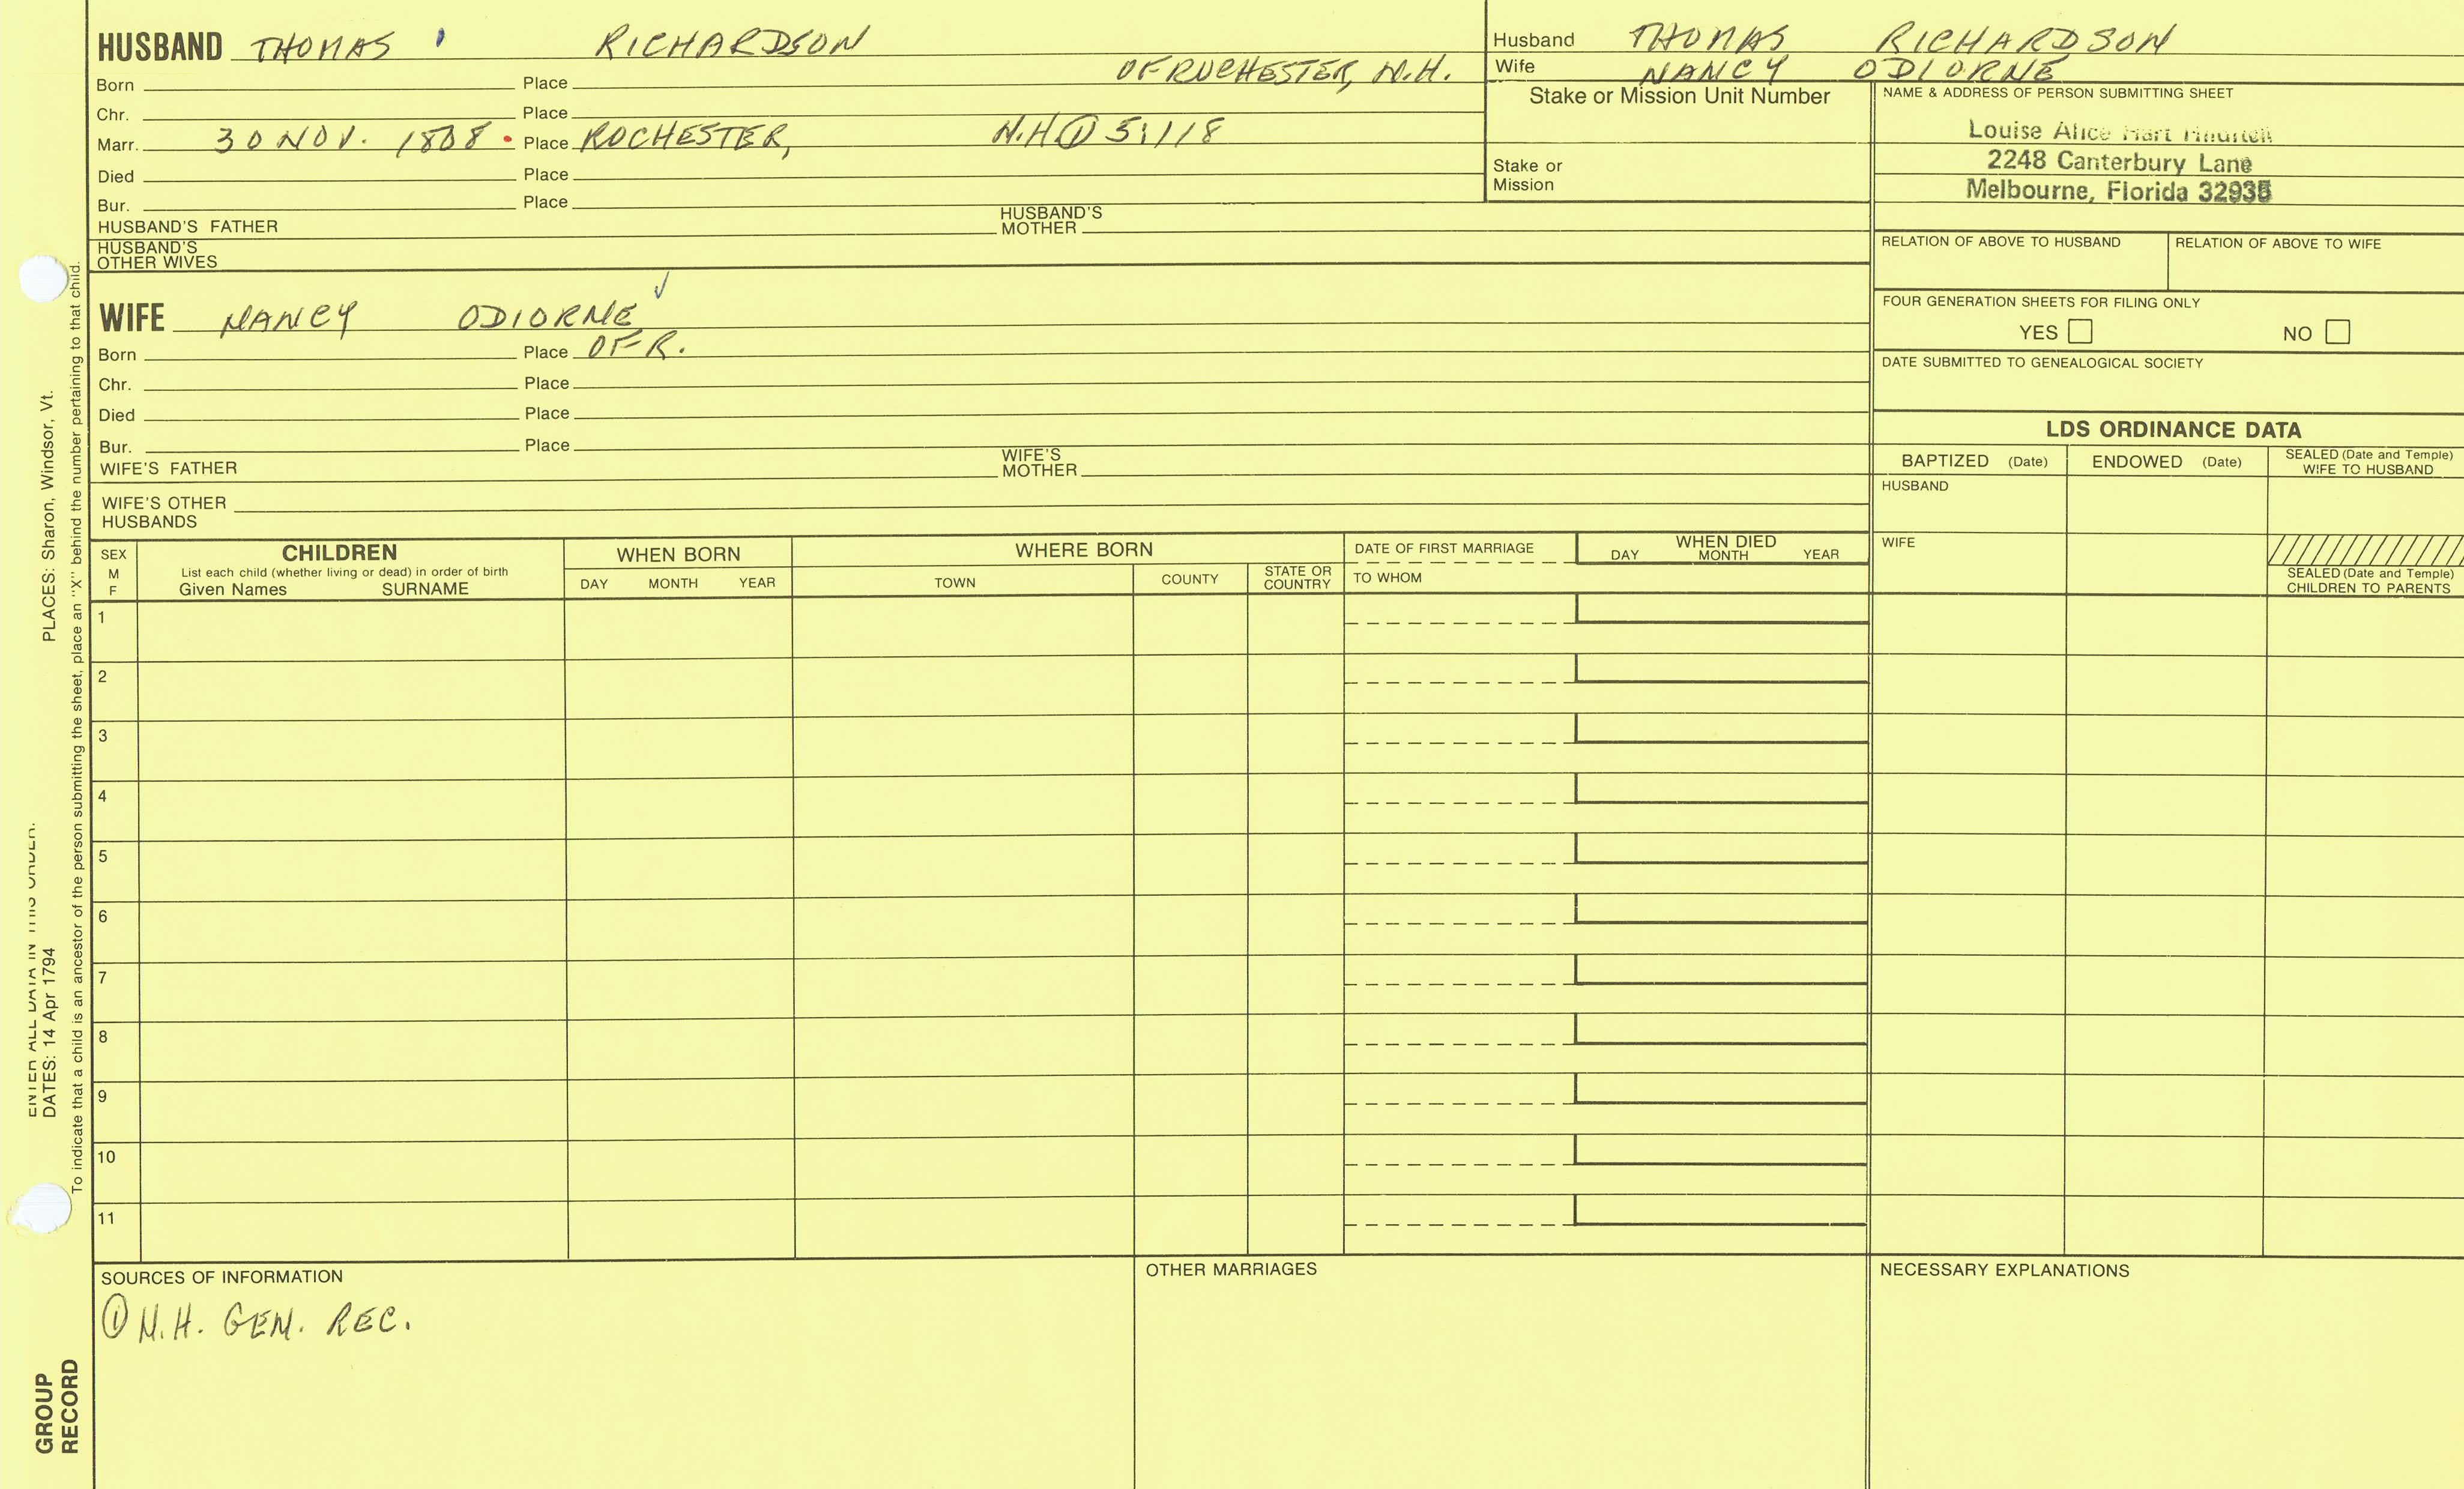 HUSBAND THOMAS RICHARDSON
OF ROCHESTER, N.H.
Born Place
Chr. Place
Marr. 30 NOV. 1808 Place ROCHESTER, N.H. ① 5:118
Died Place
Bur. Place
HUSBAND'S FATHER HUSBAND'S MOTHER
HUSBAND'S OTHER WIVES
WIFE NANCY ODIORNE ✓
Born Place OF R.
Chr. Place
Died Place
Bur. Place
WIFE'S FATHER WIFE'S MOTHER
WIFE'S OTHER HUSBANDS
Husband THOMAS RICHARDSON
Wife NANCY ODIORNE
Stake or Mission Unit Number
Stake or Mission
NAME & ADDRESS OF PERSON SUBMITTING SHEET
Louise Alice Hart
2248 Canterbury Lane
Melbourne, Florida 32935
RELATION OF ABOVE TO HUSBAND RELATION OF ABOVE TO WIFE
FOUR GENERATION SHEETS FOR FILING ONLY
YES NO
DATE SUBMITTED TO GENEALOGICAL SOCIETY
LDS ORDINANCE DATA
BAPTIZED (Date) ENDOWED (Date) SEALED (Date and Temple) WIFE TO HUSBAND
HUSBAND
WIFE
SEALED (Date and Temple) CHILDREN TO PARENTS
SEX M F
CHILDREN
List each child (whether living or dead) in order of birth
Given Names SURNAME
WHEN BORN
DAY MONTH YEAR
WHERE BORN
TOWN COUNTY STATE OR COUNTRY
DATE OF FIRST MARRIAGE
TO WHOM
WHEN DIED
DAY MONTH YEAR
1
2
3
4
5
6
7
8
9
10
11
SOURCES OF INFORMATION
① N.H. GEN. REC.
OTHER MARRIAGES
NECESSARY EXPLANATIONS
ENTER ALL DATA IN THIS ORDER:
DATES: 14 Apr 1794 PLACES: Sharon, Windsor, Vt.
To indicate that a child is an ancestor of the person submitting the sheet, place an "X" behind the number pertaining to that child.
GROUP
RECORD